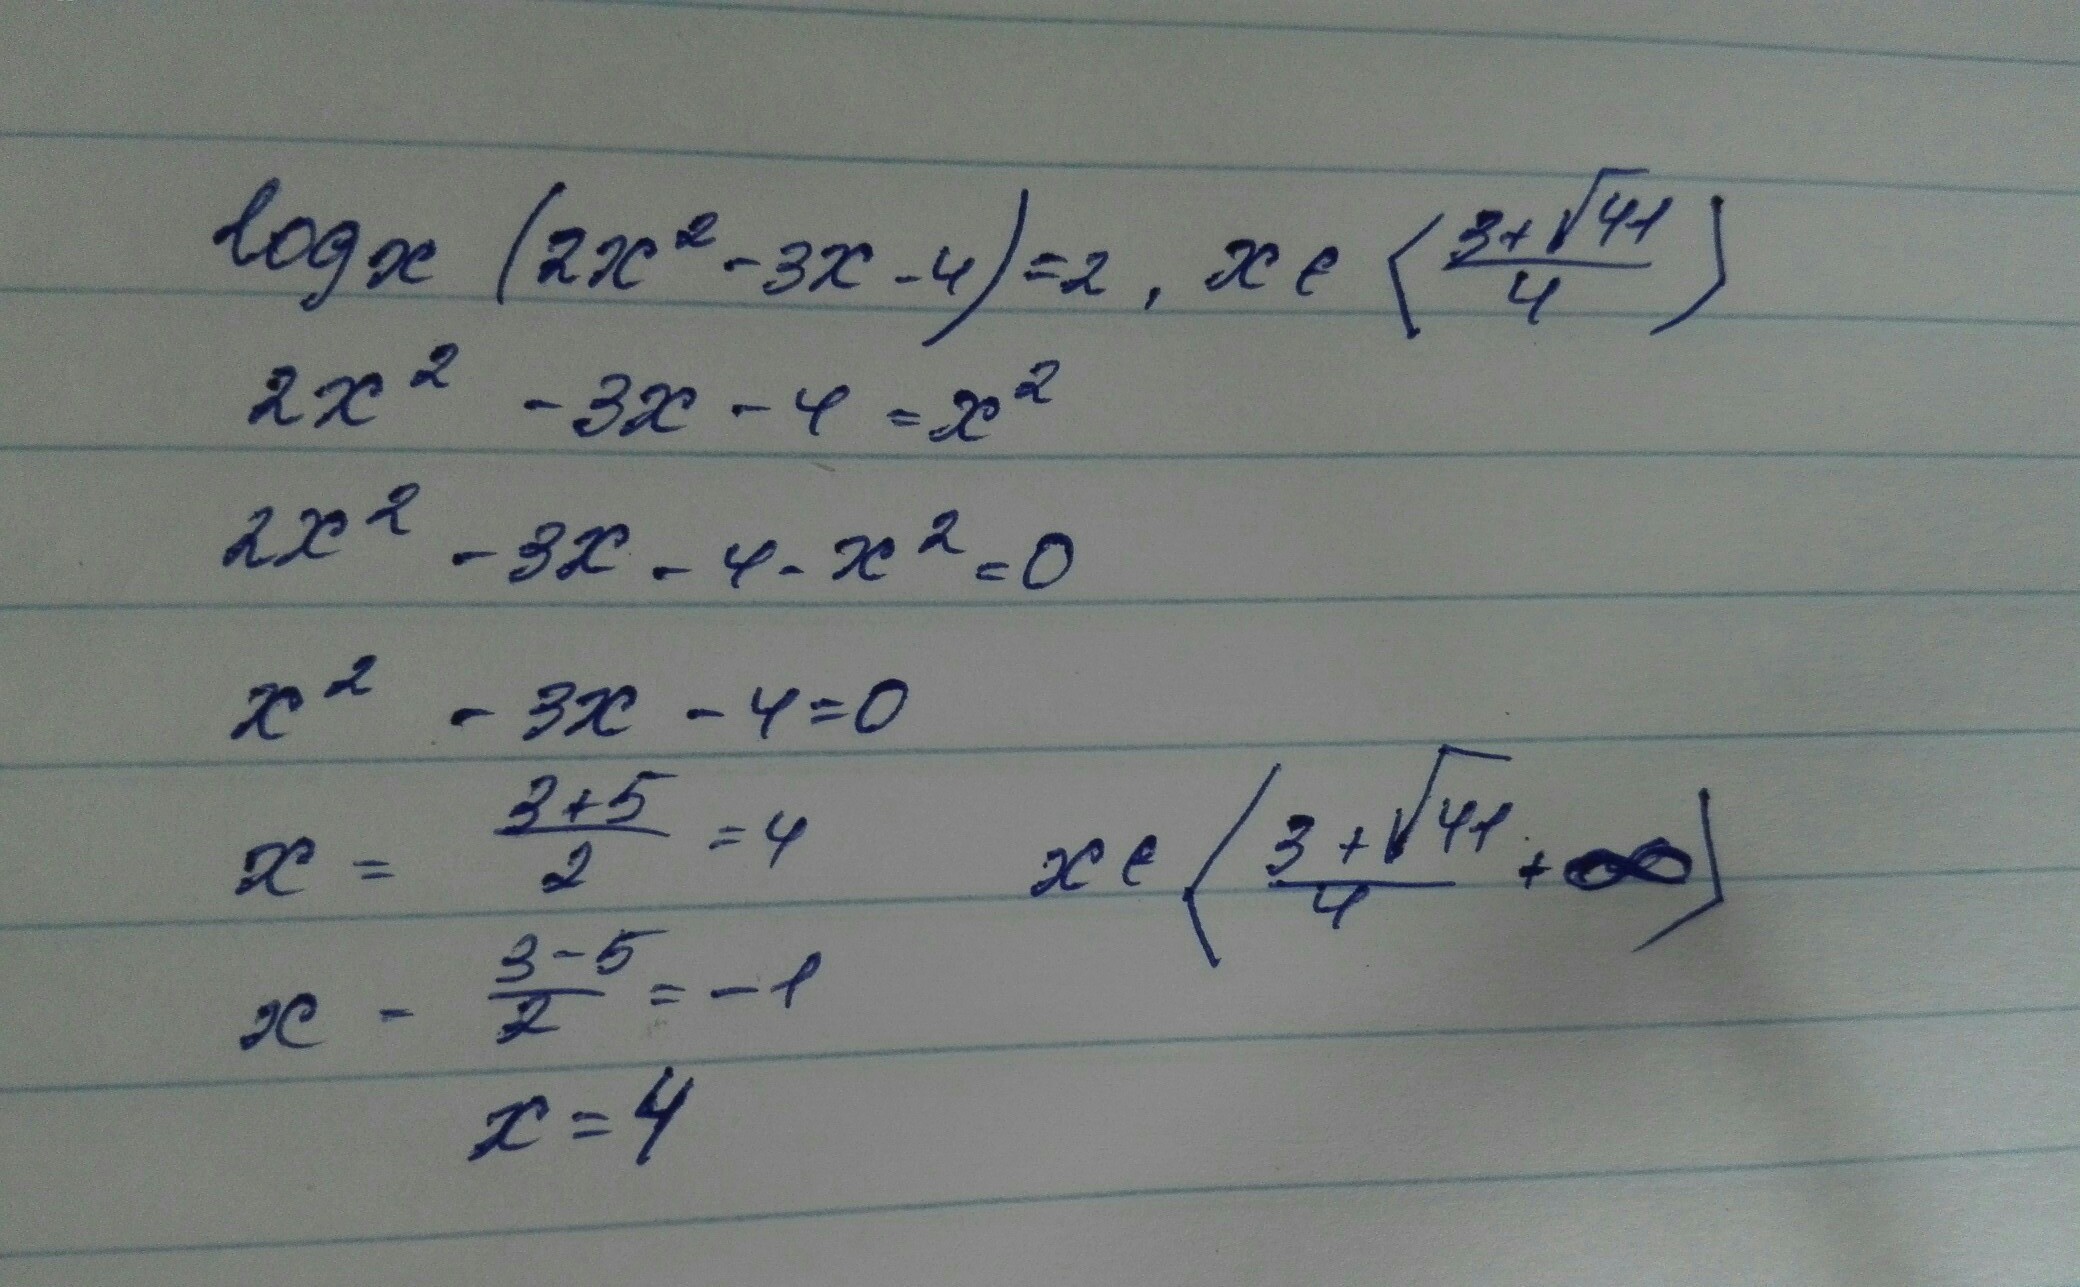 log x (2x² - 3x - 4) = 2, x ∈ ⟨(3+√41)/4⟩
2x² - 3x - 4 = x²
2x² - 3x - 4 - x² = 0
x² - 3x - 4 = 0
x = (3+5)/2 = 4 x ∈ ⟨(3+√41)/4 + ∞⟩
x - (3-5)/2 = -1
x = 4